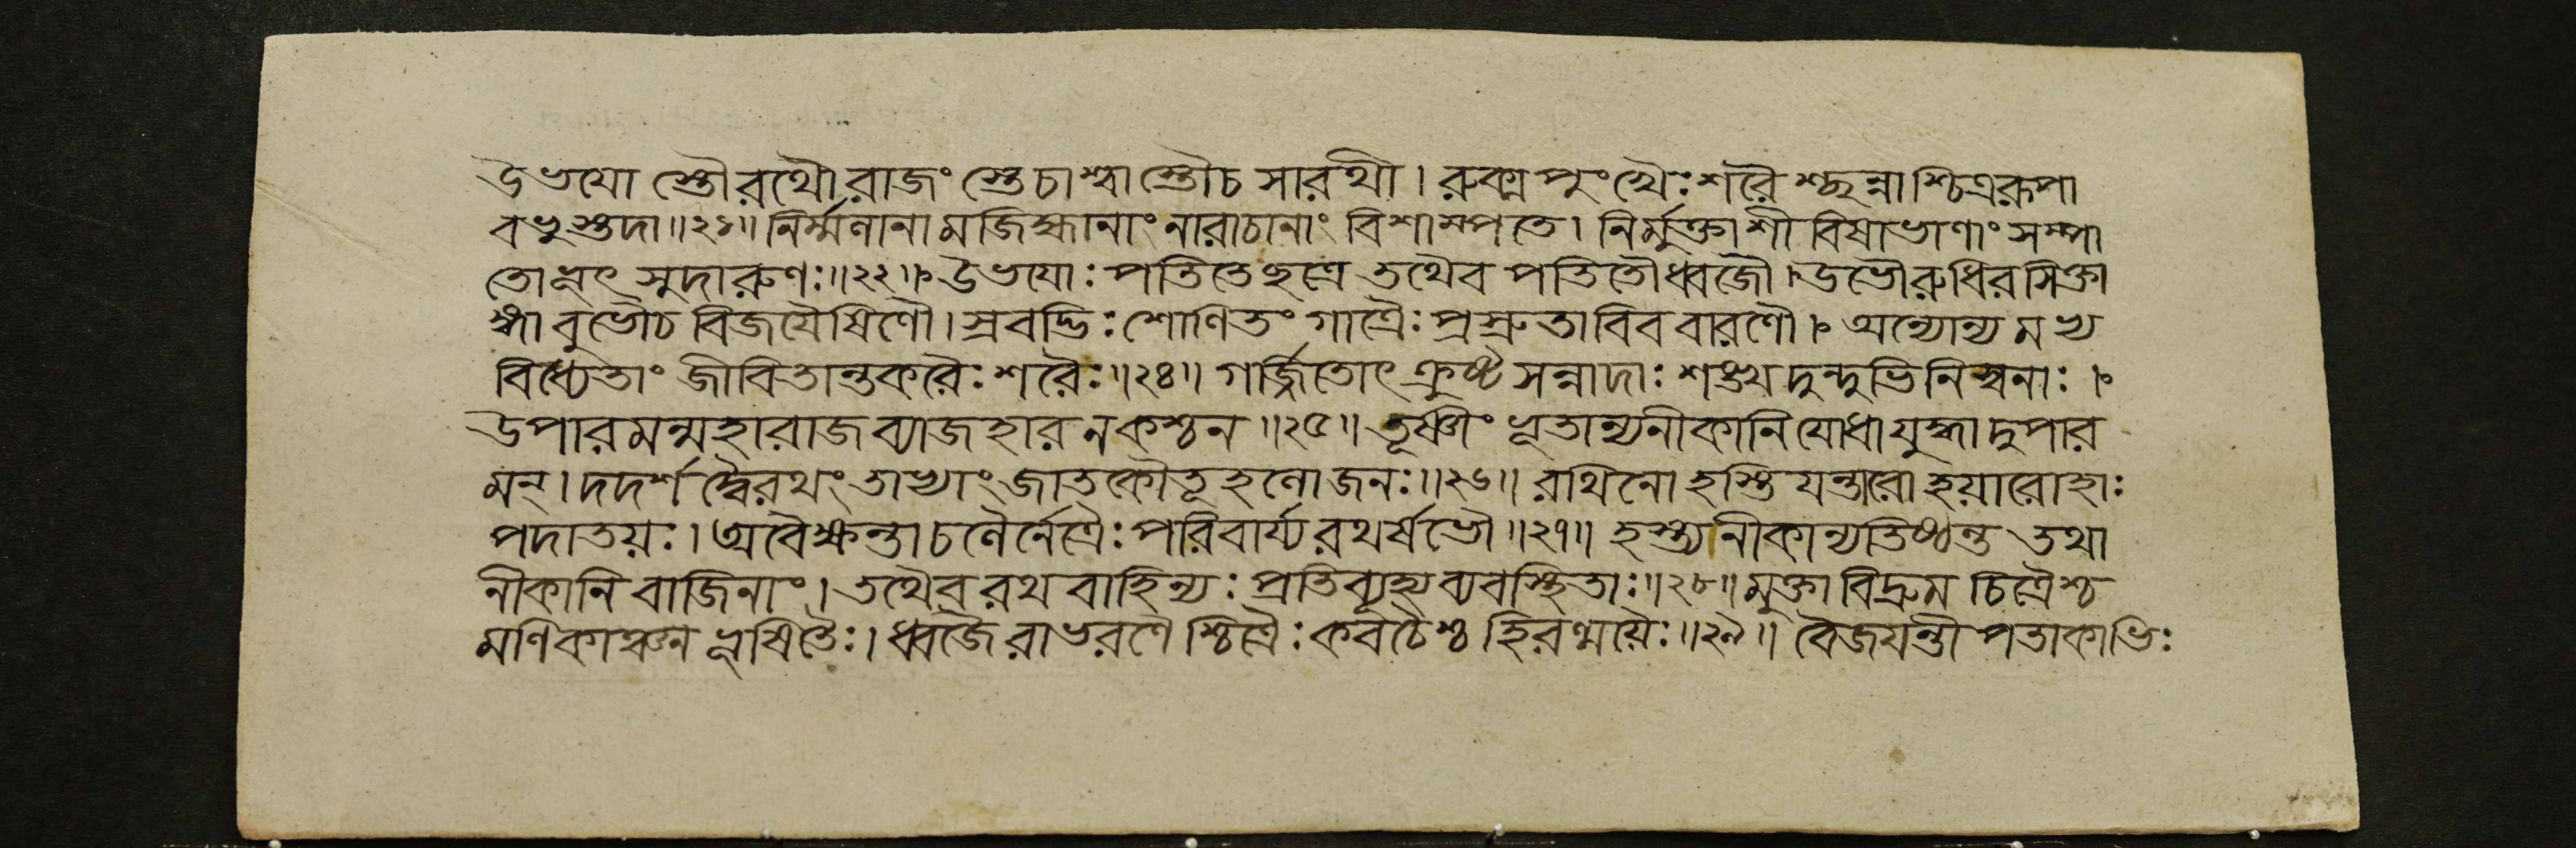 উভযো স্তৌরথৌরাজং স্তেচাশ্বাস্তৌচ সারথী। রুক্মপুংখৈঃশরৈ শ্ছন্নাশ্চিত্ররূপা
বভুস্তদা॥২১॥ নির্ম্মলানা মজিহ্মানাং নারাচানাং বিশাম্পতে। নির্মুক্তাশী বিষাভাণাং সম্পা
তোভূৎ সুদারুণঃ॥২২॥ উভযোঃ পতিতেছত্রে তথৈব পতিতৌধ্বজৌ। উভৌরুধিরসিক্তা
ঙ্গা বুভৌচ বিজযৈষিণৌ। স্রবদ্ভিঃ শোণিতং গাত্রৈঃ প্রস্রুতাবিববারণৌ। অন্যোন্য মভ্য
বিধ্যেতাং জীবিতান্তকরৈঃ শরৈঃ॥২৪॥ গর্জ্জিতোৎ ক্রুষ্ট সন্নাদাঃ শঙ্খ দুন্দুভিনিস্বনাঃ।
উপারমন্মহারাজব্যাজহারনকশ্চন॥২৫॥ তূষ্ণীং ভূতান্যনীকানিযোধাযুদ্ধাদুপার
মন্। দদর্শ দ্বৈরথং তাভ্যাং জাতকৌতূহলোজনঃ॥২৬॥ রথিনো হস্তিযন্তারো হয়ারোহাঃ
পদাতয়ঃ। অবৈক্ষন্তাচলৈর্নেত্রৈঃ পরিবার্য্যরথর্ষভৌ॥২৭॥ হস্ত্যনীকান্যতিষ্ঠন্ত তথা
নীকানি বাজিনাং। তথৈবরথবাহিন্যঃ প্রতিব্যূহ্যব্যবস্থিতাঃ॥২৮॥ মুক্তাবিদ্রুম চিত্রৈশ্চ
মণিকাঞ্চন ভূষিতৈঃ। ধ্বজৈরাভরণৈ শ্চিত্রৈঃ কবচৈশ্চ হিরণ্ময়ৈঃ॥২৯॥ বৈজযন্তী পতাকাভিঃ